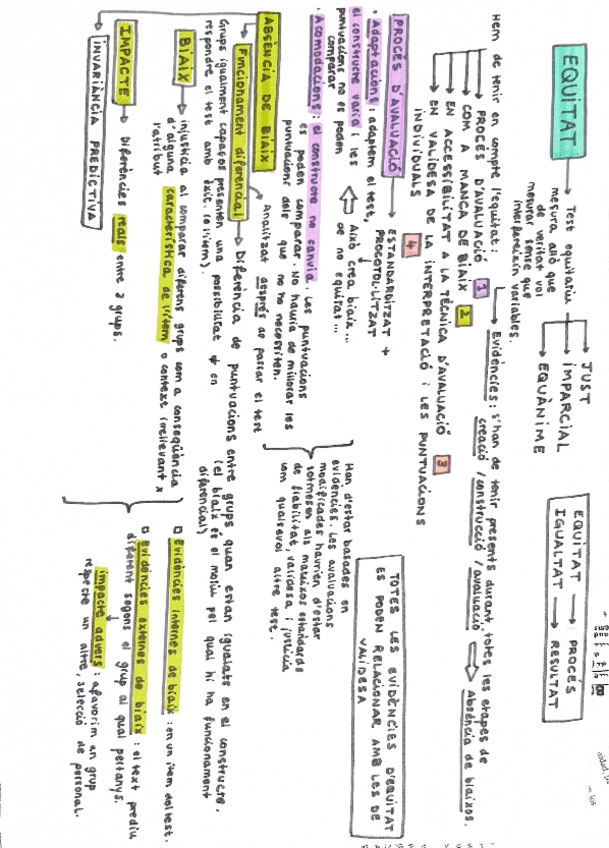 EQUITAT
Test equitatiu
mesura allò que
de veritat vol
mesurar sense que
interfereixin variables.
JUST
IMPARCIAL
EQUÀNIME
EQUITAT → PROCÉS
IGUALTAT → RESULTAT
Hem de tenir en compte l'equitat:
PROCÉS D'AVALUACIÓ 1
COM A MANCA DE BIAIX 2
EN ACCESSIBILITAT A LA TÈCNICA D'AVALUACIÓ 3
EN VALIDESA DE LA INTERPRETACIÓ I LES PUNTUACIONS
INDIVIDUALS 4
Evidències: s'han de tenir presents durant totes les etapes de
creació / construcció / avaluació
Absència de biaixos.
PROCÉS D'AVALUACIÓ → ESTANDARDITZAT +
PROTOCOL·LITZAT
· Adaptacions: adaptem el test,
el constructe varia i les
puntuacions no es poden
comparar
Això crea biaix...
de no equitat...
· Acomodacions: el constructe no canvia. Les puntuacions
es poden comparar. No hauria de millorar les
puntuacions dels que no ho necessiten.
Han d'estar basades en
evidències. Les avaluacions
modificades haurien d'estar
sotmeses als mateixos estàndards
de fiabilitat, validesa i justícia
com qualsevol altre test.
TOTES LES EVIDÈNCIES D'EQUITAT
ES PODEN RELACIONAR AMB LES DE
VALIDESA
ABSÈNCIA DE BIAIX → Analitzat després de passar el test
Funcionament diferencial → Diferència de puntuacions entre grups quan estan igualats en el constructe.
Grups igualment capaços presenten una possibilitat ≠ en
respondre el test amb èxit. (o l'ítem).
(el biaix és el motiu pel qual hi ha funcionament
diferencial)
BIAIX → injustícia al comparar diferents grups com a conseqüència
d'alguna característica de l'ítem o context irrellevant x
l'atribut
IMPACTE → Diferències reals entre 2 grups.
INVARIÀNCIA PREDICTIVA
Evidències internes de biaix: en un ítem del test.
Evidències externes de biaix: el test prediu
diferent segons el grup al qual pertanys.
impacte advers: afavorim un grup
respecte un altre, selecció de
personal.